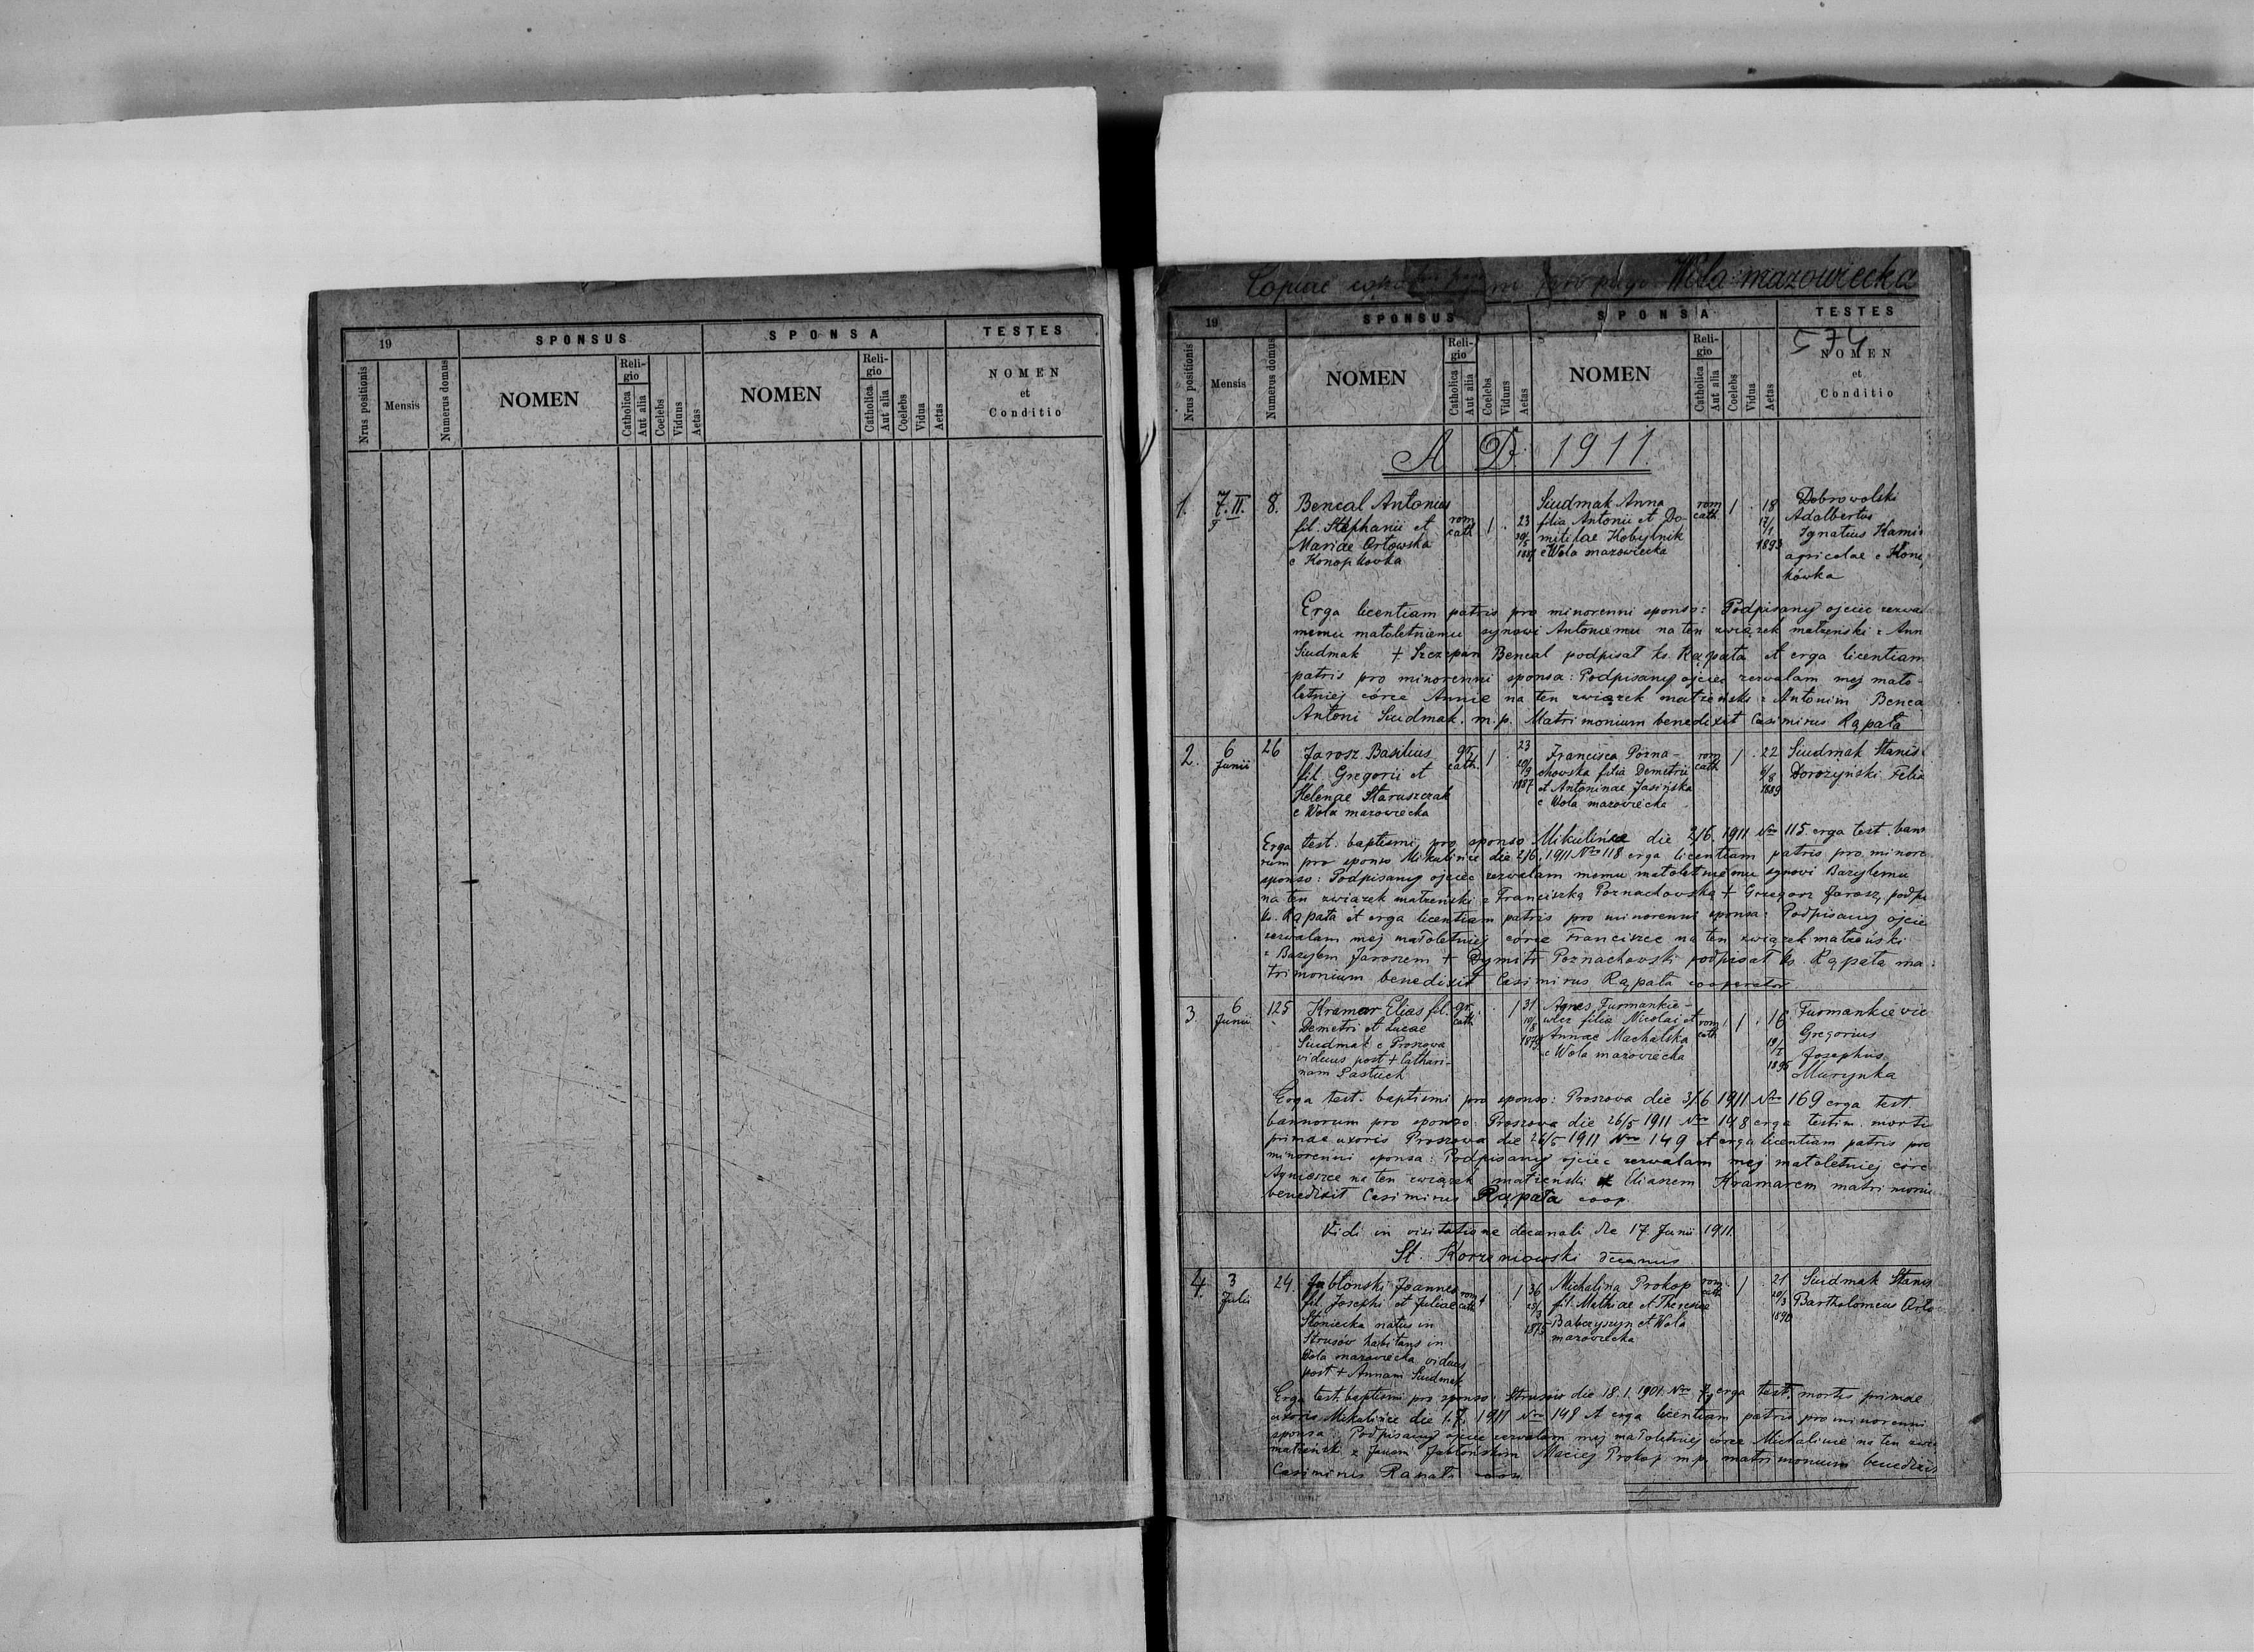 19
SPONSUS
SPONSA
TESTES
Nrus positionis
Mensis
Numerus domus
NOMEN
Religio
Catholica
Aut alia
Coelebs
Viduus
Aetas
NOMEN
Religio
Catholica
Aut alia
Coelebs
Vidua
Aetas
NOMEN
et
Conditio
Copiae Wola mazowiecka
19
SPONSUS
SPONSA
TESTES
574
Nrus positionis
Mensis
Numerus domus
NOMEN
Reli-
gio
Catholica
Aut alia
Coelebs
Viduus
Aetas
NOMEN
Reli-
gio
Catholica
Aut alia
Coelebs
Vidua
Aetas
NOMEN
et
Conditio
A D 1911
1. 7. II. 8. Bencal Antonius
fil. Stephanii et
Mariae Orłowska
e Konopkowka
rom
cath
1 . 23
20/5
1887
Siudmak Anna
filia Antonii et Do-
mitilae Kobylnik
e Wola mazowiecka
rom
cath
1 . 18
17/1
1893
Dobrowolski
Adalbertus
Ignatius Kamis
agricolae e Kono
kówka
Erga licentiam patris pro minorenni sponso: Podpisany ojciec zezwa
memu małoletniemu synowi Antoniemu na ten związek małżeński z Ann
Siudmak + Szczepan Bencal podpisał ks. Rąpała et erga licentiam
patris pro minorenni sponsa: Podpisany ojciec zezwalam mej mało-
letniej córce Annie na ten związek małżeński z Antonim Benca
Antoni Siudmak. m.p. Matrimonium benedixit Casimirus Rąpała
2. 6 Junii 26 Jarosz Basilius
fil. Gregorii et
Helenae Staruszczak
e Wola mazowiecka
gr.
cath.
1 . 23
20/9
1887
Francisca Pozna-
chowska filia Demetrii
et Antoninae Jasińska
e Wola mazowiecka
rom
cath
1 . 22
6/8
1889
Siudmak Stanis
Dorożyński Felix
Erga test. baptismi pro sponso Mikulińce die 2/6. 1911 Nro 115. erga test. bann
rum pro sponso Mikulińce die 2/6. 1911 Nro 118 erga licentiam patris pro minore
sponso: Podpisany ojciec zezwalam memu małoletniemu synowi Bazylemu
na ten związek małżeński z Franciszką Poznachowską + Grzegorz Jarosz, podpi
ks. Rąpała et erga licentiam patris pro minorenni sponsa: Podpisany ojcie
zezwalam mej małoletniej córce Franciszce na ten związek małżeński
z Bazylem Jaroszem + Dymitr Poznachowski podpisał ks. Rąpała ma:
trimonium benedixit Casimirus Rąpała cooperator
3. 6 Junii 125 Kramar Elias fil.
Demetri et Luciae
Siudmak e Proszowa
viduus post + Cathari-
nam Pastuch
gr.
cath
. 1 31
10/8
1879
Agnes Furmankie-
wicz filia Nicolai et
Annae Machalska
e Wola mazowiecka
rom
cath
1 . 16
19/I
1895
Furmankiewic
Gregorius
Josephus
Murynka
Erga test. baptismi pro sponso: Proszowa die 3/6 1911 Nro 169 erga test.
bannorum pro sponso Proszowa die 26/5 1911 Nro 148 erga testim. mortis
primae uxoris Proszowa die 26/5 1911 Nro 149 et erga licentiam patris pro
minorenni sponsa: Podpisany ojciec zezwalam mej małoletniej córc
Agnieszce na ten związek małżeński z Eliaszem Kramarem matrimoniu
benedixit Casimirus Rąpała coop.
Vidi in visitatione decanali die 17. Junii 1911.
St. Korzeniowski decanus
4. 3 Julii 24. Jabłonski Joannes
fil. Josephi et Juliae
Słoniecka natus in
Strusów habitans in
Wola mazowiecka viduus
post + Annam Siudmak
rom
cath
. 1 36
25/3
1875
Michalina Prokop
fil. Mathiae et Theresiae
Babczyszyn et Wola
mazowiecka
rom
cath
1 . 21
20/3
1890
Siudmak Stanis
Bartholomeus Orło
Erga test. baptismi pro sponso: Strusów die 18. 1. 1901. Nro 7, erga test. mortis primae
uxoris Mikulińce die 1.7. 1911 Nro 148 et erga licentiam patris pro minorenni
sponsa: Podpisany ojciec zezwalam mej małoletniej córce Michalinie na ten zwi
małżeński z Janem Jabłońskim Maciej Prokop m.p. matrimonium benedixit
Casimirus Rąpała coop.